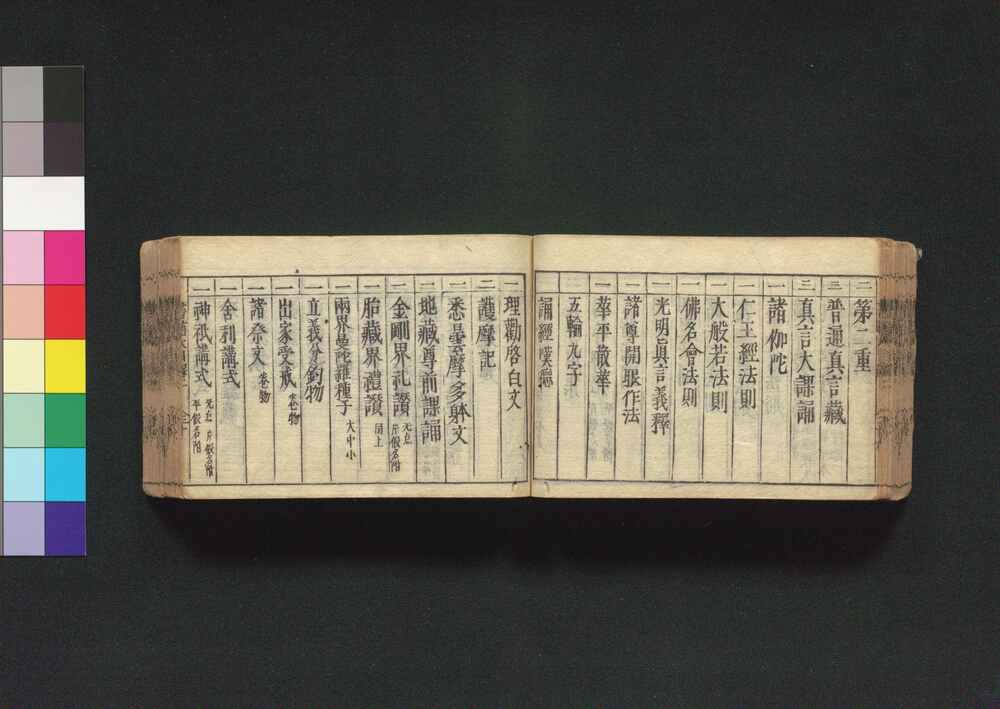 二 第二重
三 普通真言藏
三 真言大課誦
一 諸伽陀
一 仁王經法則
一 大般若法則
一 佛名會法則
一 光明眞言義釋
一 諸尊開眼作法
一 華平散華
五輪九字
誦經
一 理勸啓白文
二 護摩記
一 悉曇摩多躰文
二 地藏尊前課誦
二 金剛界礼讃
一 胎藏界禮讃 同上
一 兩界種子 大中小
一 卷物
一 出家受戒 卷物
一 諸祭文 卷物
一 舍利講式
一 神祇講式